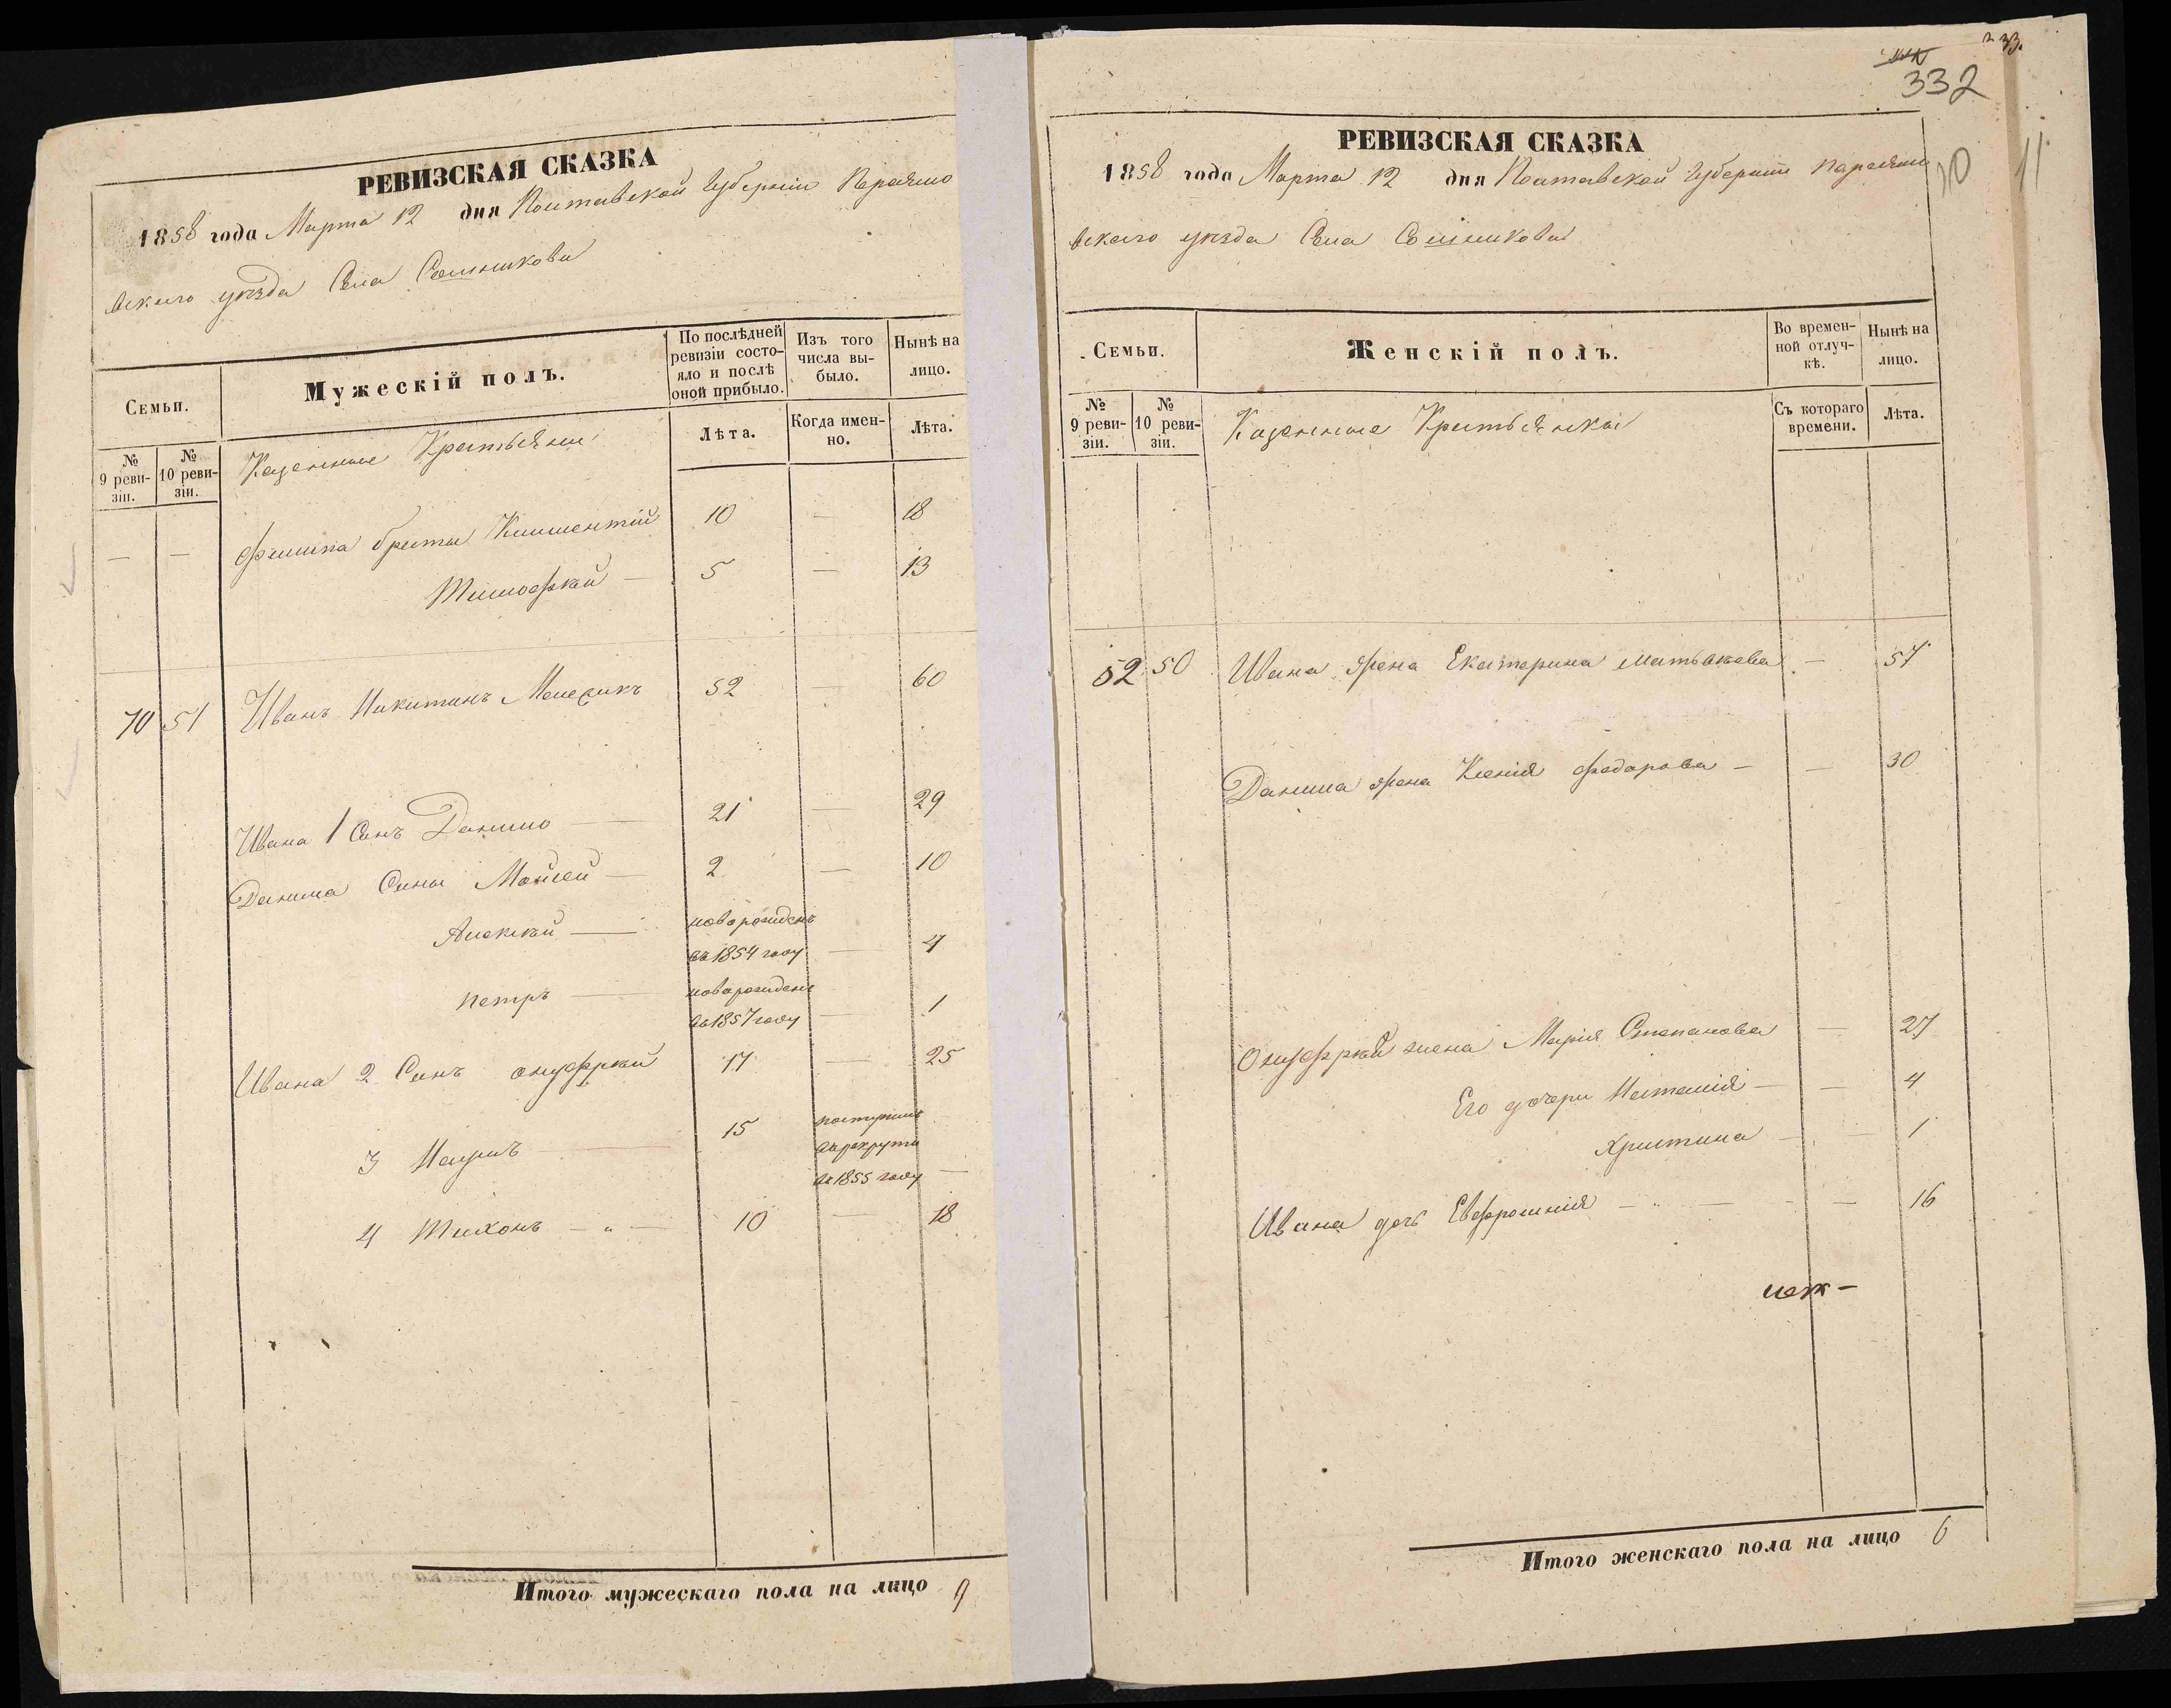 РЕВИЗСКАЯ СКАЗКА
1858 года Марта 12 дня Полтавской Губерніи Переясло
вскаго уѣзда Села Сошникова
Семьи.
Мужескій полъ.
По послѣдней ревизіи состояло и послѣ оной прибыло.
Изъ того числа выбыло.
Нынѣ на лицо.
№ 9 ревизіи.
№ 10 ревизіи.
Казенные Крестьяни
Лѣта.
Когда именно.
Лѣта.
— — Филипа браты Климентій 10 — 18
Тимофѣй — 5 — 13
70 51 Иванъ Никитинъ 52 — 60
Ивана 1 Сынъ Данило — 21 — 29
Данила Сыны Мойсей — 2 — 10
Алексѣй — новорожденъ
въ 1854 году — 4
Петръ — новорожденъ
въ 1857 году — 1
Ивана 2 Сынъ Онуфрѣй 17 — 25
3 15 поступилъ
в рекруты
въ 1855 году —
4 Тихонъ — „ — 10 — 18
Итого мужескаго пола на лицо 9
33.
332
10
11
РЕВИЗСКАЯ СКАЗКА
1858 года Марта 12 дня Полтавской Губерніи Переясло
вскаго уѣзда Села Сошникова
Семьи.
Женскій полъ.
Во временной отлучкѣ.
Нынѣ на лицо.
№ 9 ревизіи.
№ 10 ревизіи.
Казенные Крестьянки
Съ котораго времени.
Лѣта.
52 50 Ивана жена Екатерина Матвѣева — 57
Данила жена Ксенія Федорова — — 30
Онуфрѣй жена Марія Степанова — 27
Его дочери Настасія — — 4
Христина — — 1
Ивана дочь Евфросинія — — — 16
Итого женскаго пола на лицо 6